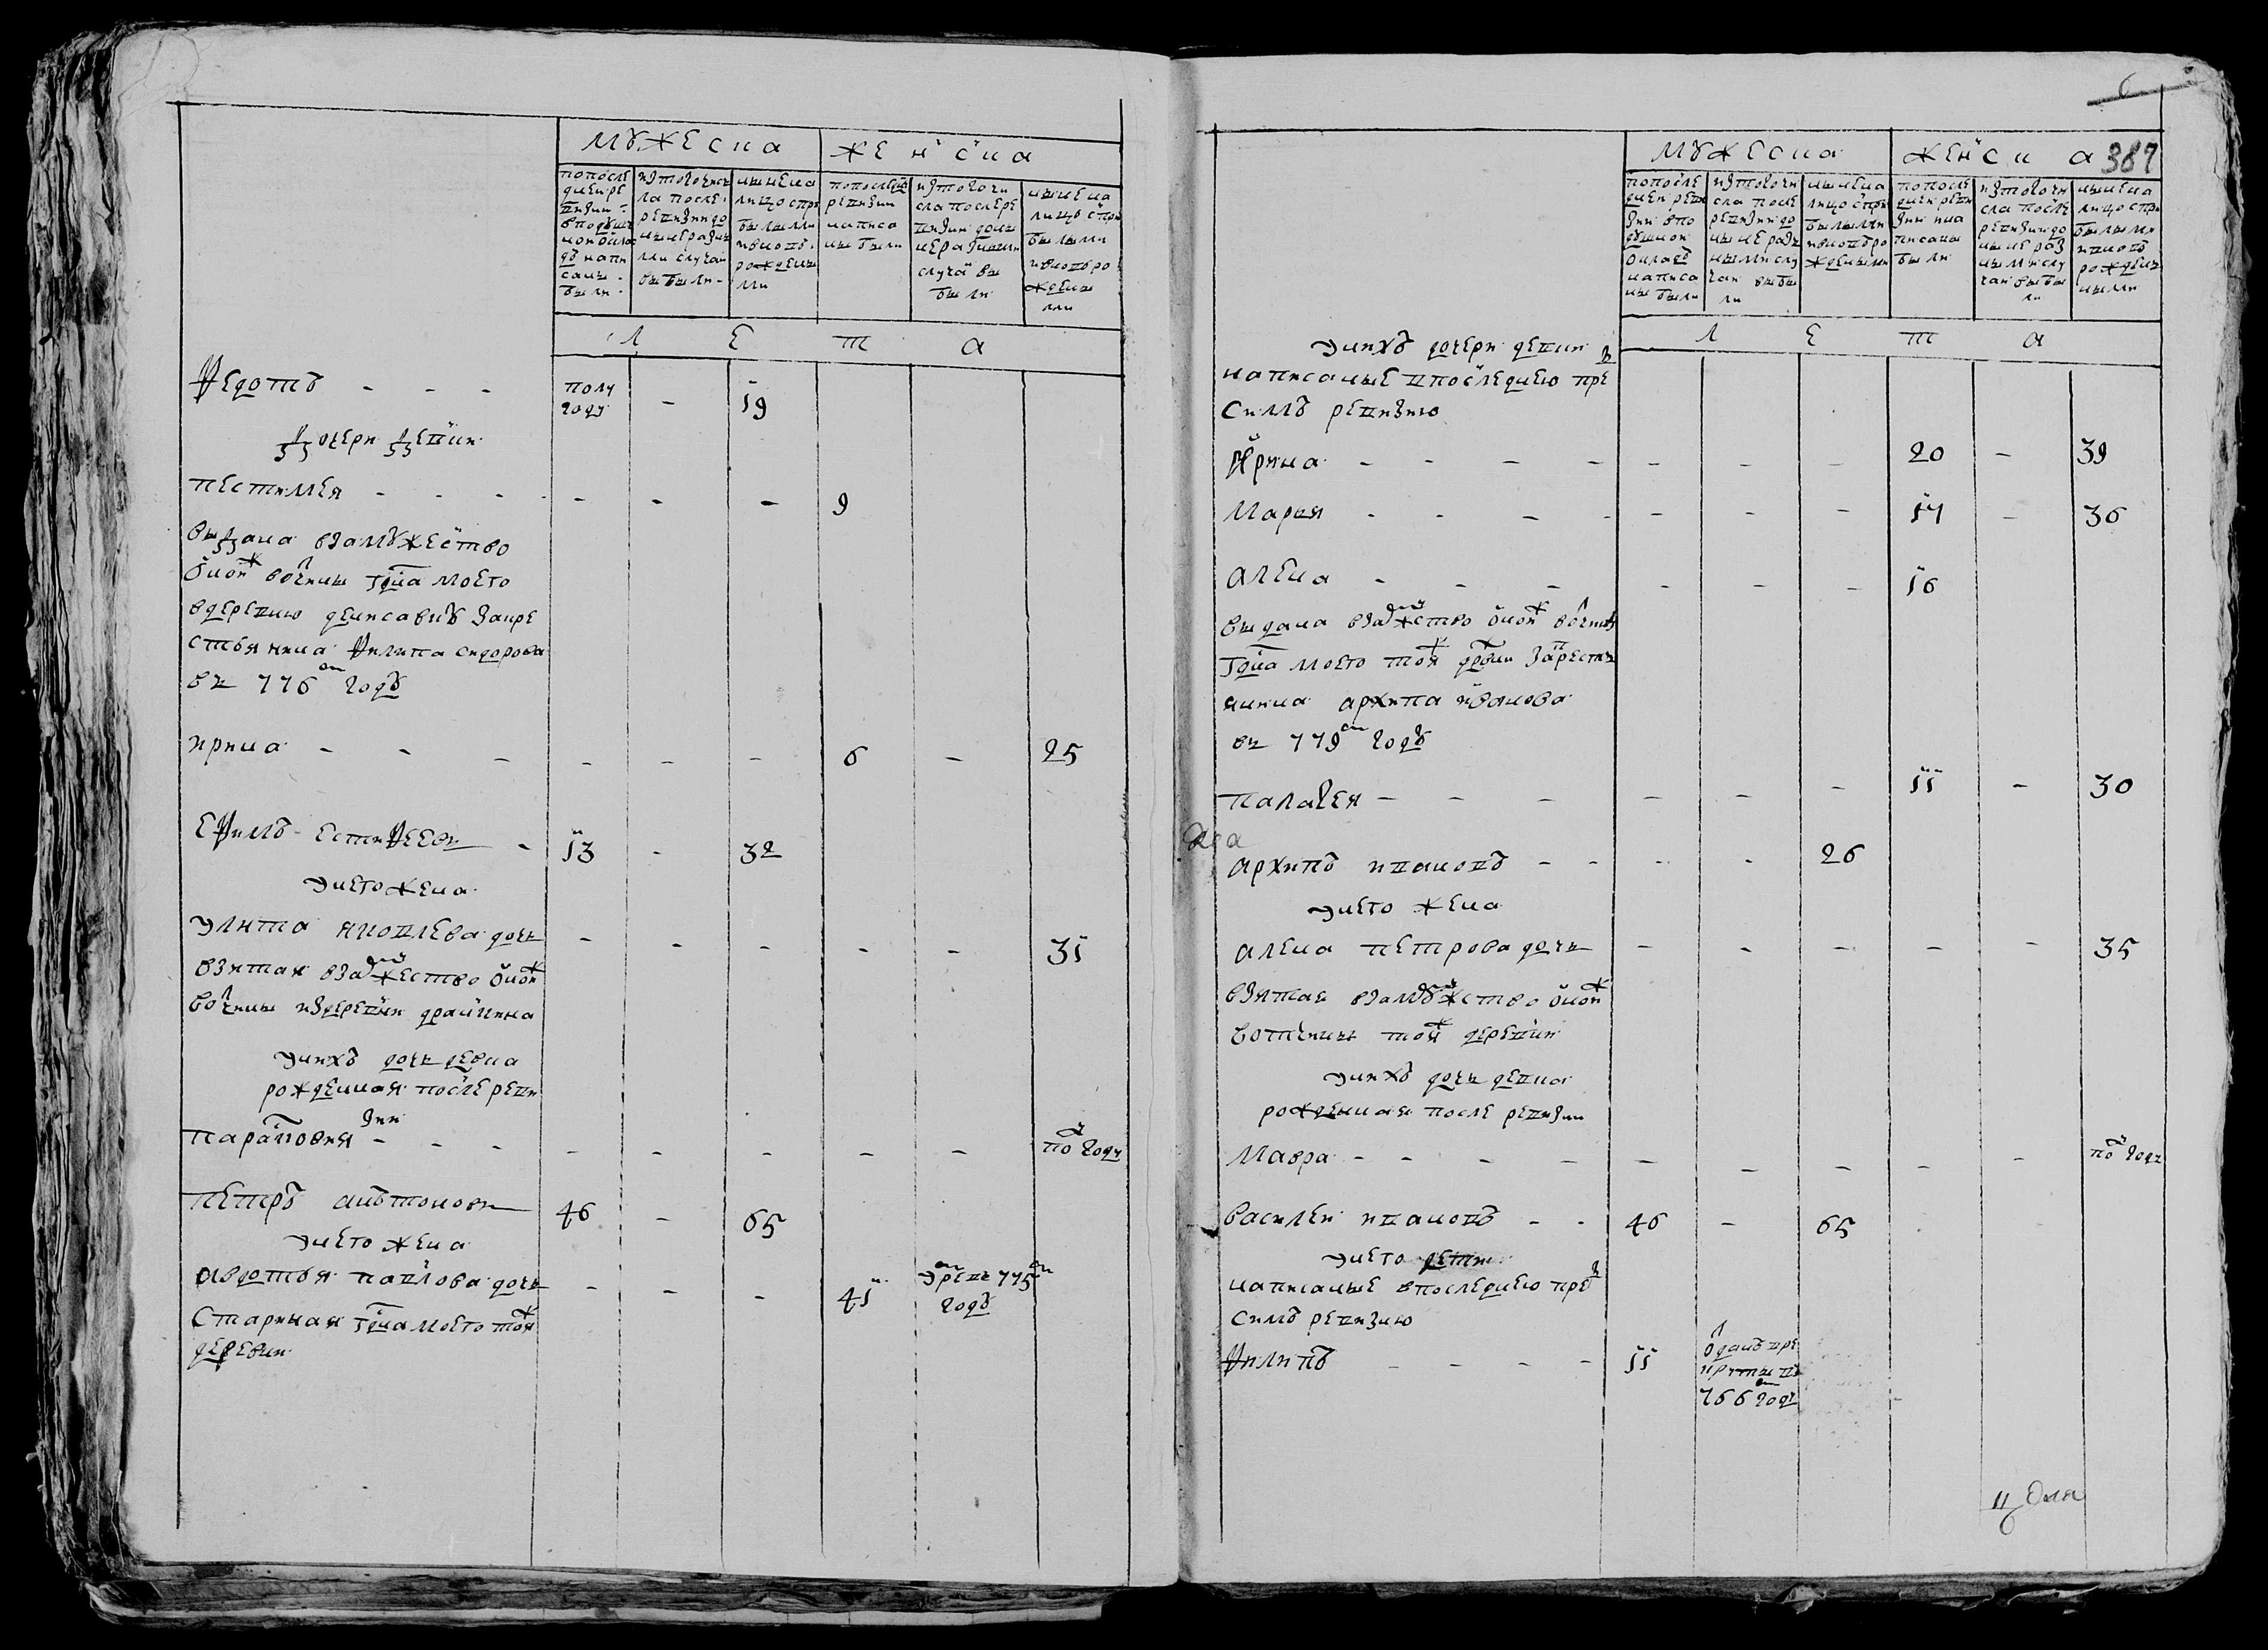 мужеска женска
попосле днеи ревизии в подушнои окладъ написаны были
ис того числа после ревизии до ныне разными случаи выбыли
ныне налицо с прибылыми и вновь рожденными
по последнеи ревизии написаны были
ис того числа после ревизии до ныне разными случаи выбыли
ныне на лицо с прибылыми и вновь рожденными
лета
Федотъ - - - полу году - 19
дочери девки
пестимея - - - - - - 9
выдана взамужество
онои ж вочины гдна моего
вдеревню денисавку закре
стьянина Филипа сидорова
въ 776 м годѣ
ирина - - - - - - 6 - 25
ефимъ естифеевъ - 13 - 32
у него жена
улита яковлева дочь - - - - - 31
взятая взамужество онои ж
вочины издеревни
у нихъ дочь девка
рожденная после реви
зии
парасковия - - - - - - - - полгоду
петръ антоновъ 46 - 65
у него жена
авдотья павлова дочь - - - 41 умре въ 775 м годѣ
старинная гдна моего тои ж
деревни
387
мужеска женска
попосле днеи ревизии в подушнои окладѣ написаны были
ис того числа после ревизии до ныне разными случаи выбыли
ныне на лицо с прибылыми и вновь рожденными
попосле днеи ревизии написаны были
ис того числа после ревизии до ныне разными случаи выбыли
ныне на лицо с прибылыми и вновь рожденными
лета
у нихъ дочери девки
написаные впоследнею пре
симъ ревизию
ирина - - - - - - - 20 - 39
марья - - - - - - - 17 - 36
алена - - - - - - 16
выдана взамужство онои ж вочины
гдна моего тои ж дрвни закресть
янина архипа иванова
въ 779 м годѣ
палагея - - - - - - 11 - 30
архипъ ивановъ - - - - 26
у него жена
алена петрова дочь - - - - - 35
взятая взамужство онои ж
вотчины тои ж деревни
у нихъ дочь девка
рожденая после ревизии
мавра - - - - - - - - - полгоду
василеи ивановъ - - 46 - 65
у него дети
написаные впоследнею пре
симъ ревизию
Филипъ - - - - 11 отданъ вре
круты въ
766 м годѣ